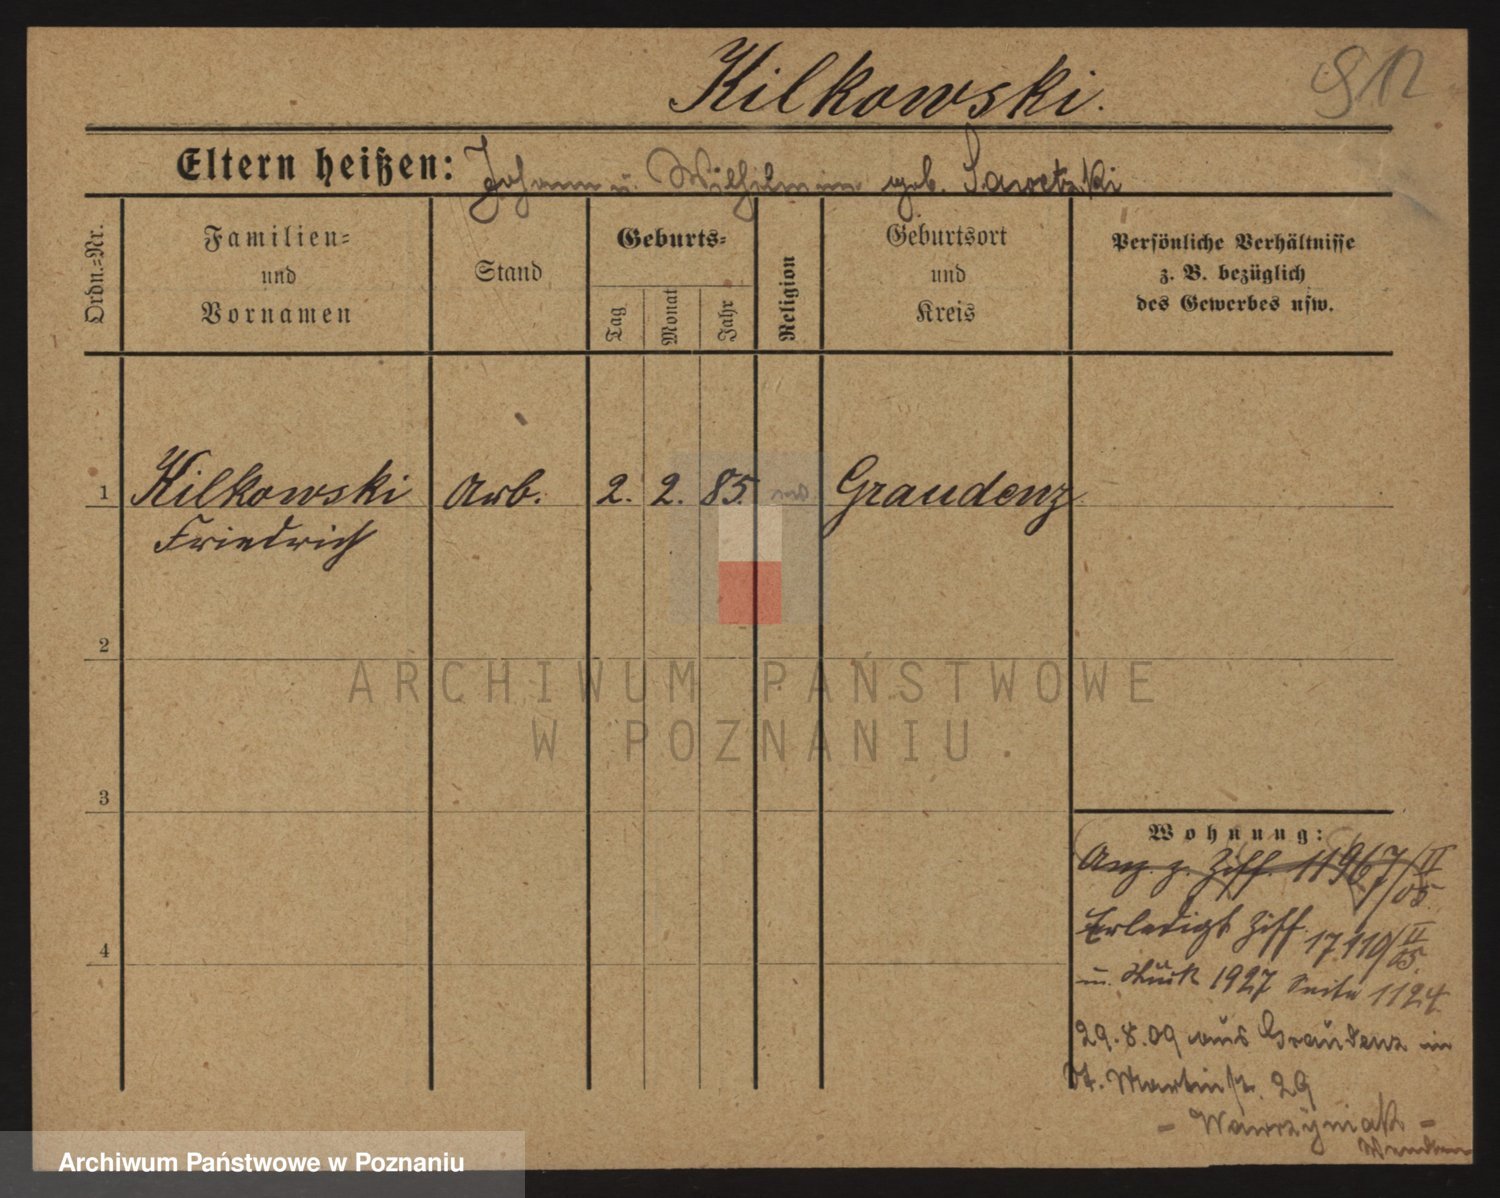 Kilkowski.
912
Eltern heißen: Johann u. Wilhelmine geb. Sawetzki
Ordn.-Nr.
Familien-
und
Vornamen
Stand
Geburts-
Tag
Monat
Jahr
Religion
Geburtsort
und
Kreis
Persönliche Verhältnisse
z. B. bezüglich
des Gewerbes usw.
1 Kilkowski Arb. 2. 2. 85. Graudenz
Friedrich
2
3
4
Wohnung:
Anz. z. Ziff. 11967/II 05
Erledigt Ziff. 17110/II 05.
u. Stück 1927 Seite 1124
29.8.09 aus Graudenz in
St. Martinstr. 29
- Wawrzyniak -
ARCHIWUM PAŃSTWOWE
W POZNANIU.
Archiwum Państwowe w Poznaniu